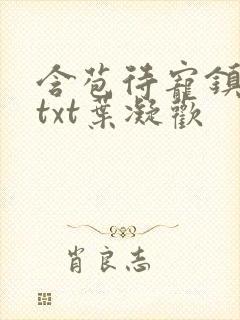 含苞待寵鎮
txt葉凝歡
肖良志